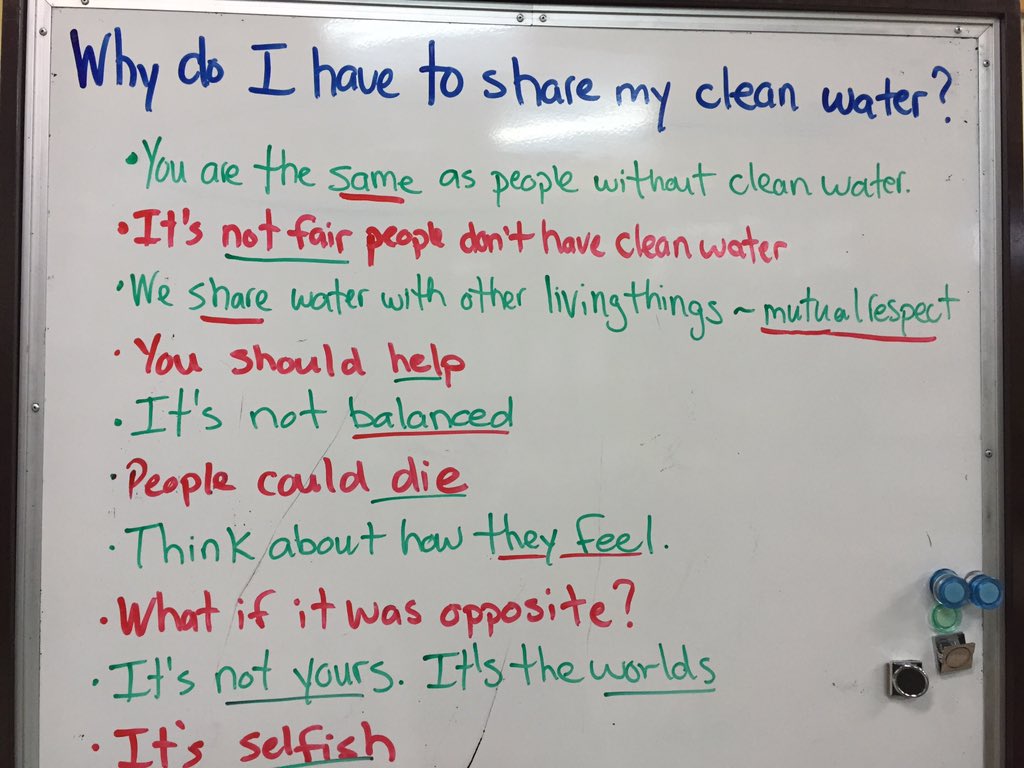 Why do I have to share my clean water?
• You are the same as people without clean water.
• It's not fair people don't have clean water
• We share water with other living things ~ mutual respect
• You should help
• It's not balanced
• People could die
• Think about how they feel.
• What if it was opposite?
• It's not yours. It's the worlds
• It's selfish